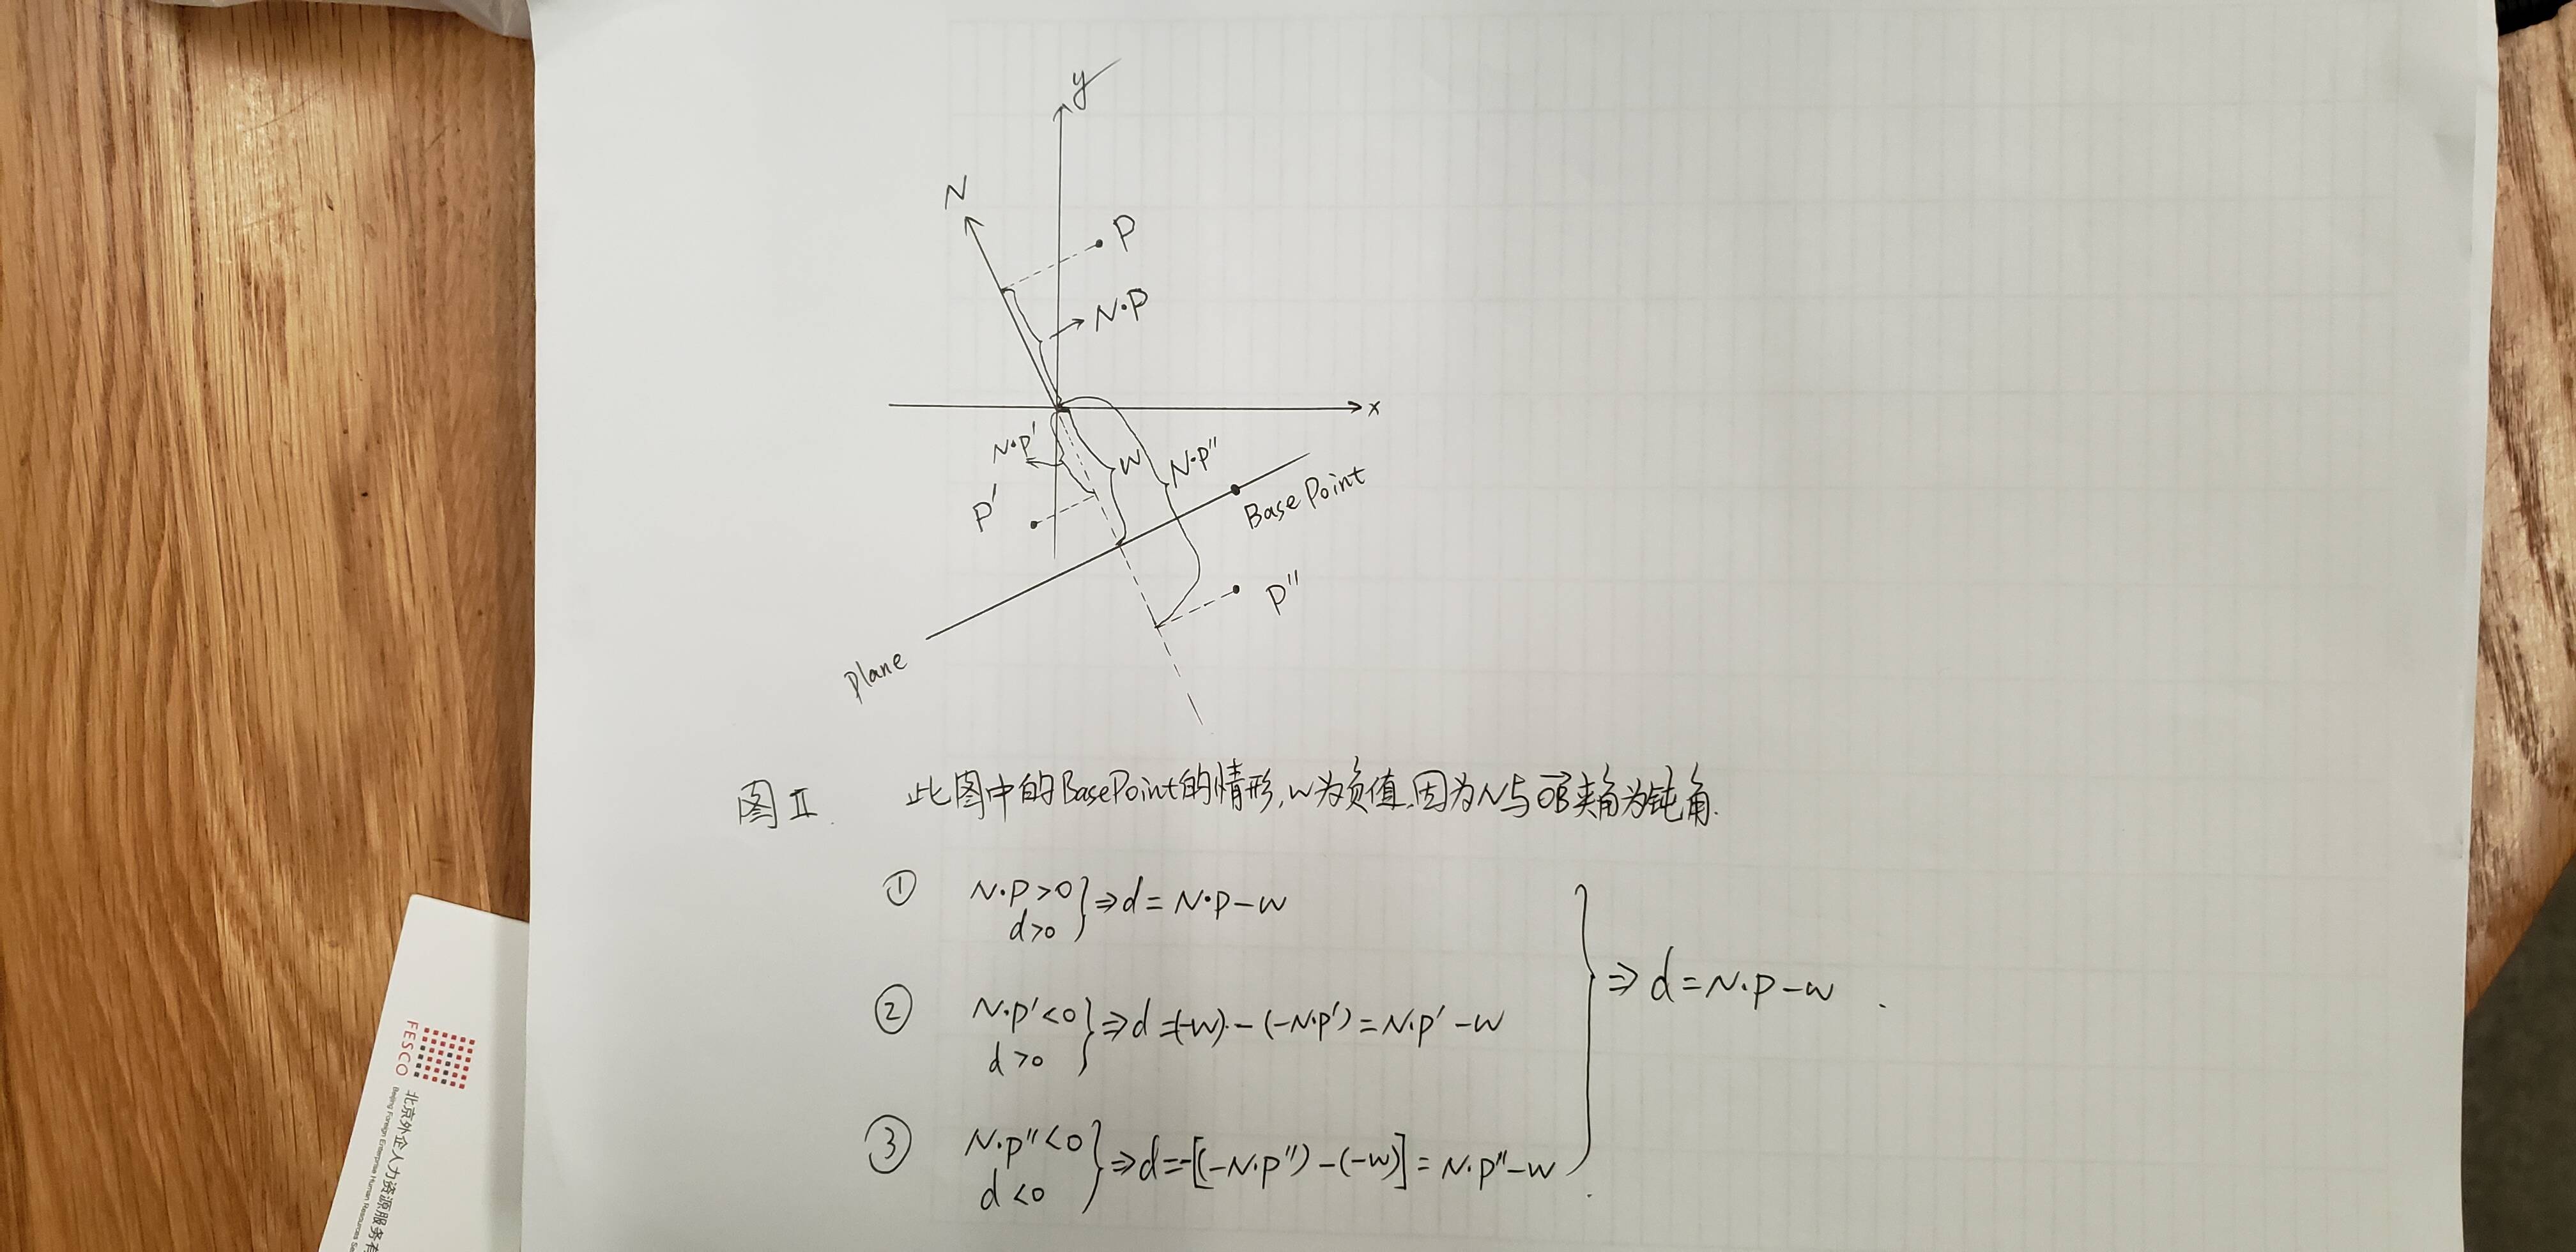 y
N
P
N·P
x
N·P'
W
N·P''
P'
Base Point
P''
Plane
图Ⅱ. 此图中的BasePoint的情形,W为负值.因为N与OB夹角为钝角.
① N·P>0
d>0 } ⇒ d = N·P-W
② N·P'<0
d>0 } ⇒ d =(-W)-(-N·P') = N·P'-W
} ⇒ d = N·P-W.
③ N·P''<0
d<0 } ⇒ d =-[(-N·P'')-(-W)] = N·P''-W
FESCO
北京外企人力资源服务有
Beijing Foreign Enterprise Human Resources Se